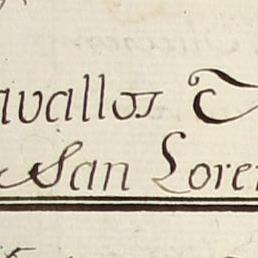 avallos
San Loren